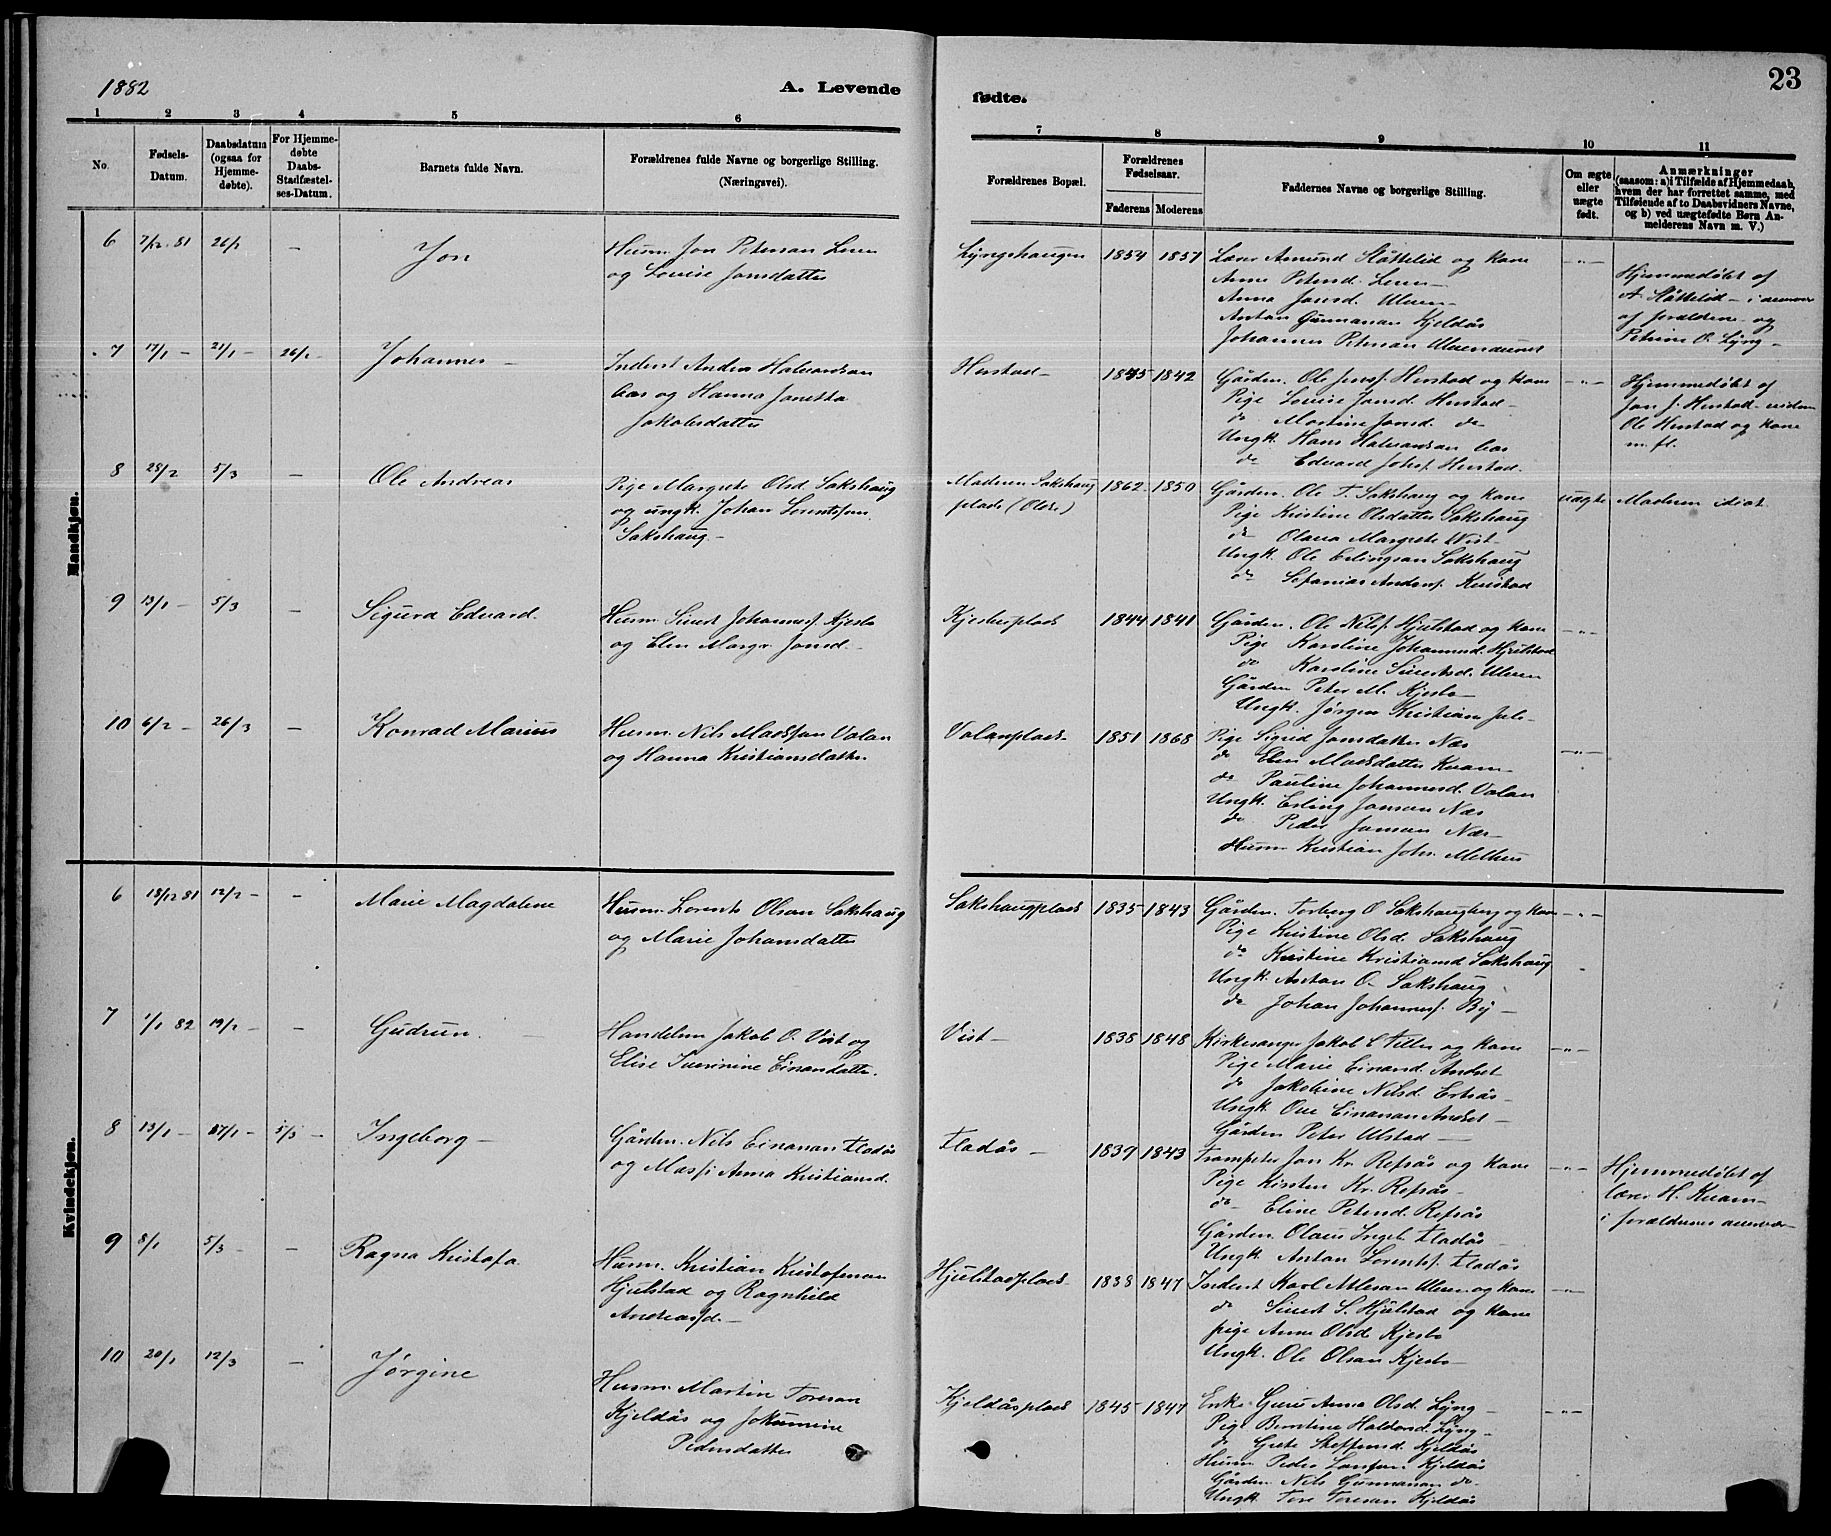 1882
A. Levende
fødte.
23
1 2 3 4 5 6 7 8 9 10 11
No.
Fødsels-Datum.
Daabsdatum (ogsaa for Hjemmedøbte).
For Hjemmedøbte Daabs-Stadfæstelses-Datum.
Barnets fulde Navn.
Forældrenes fulde Navne og borgerlige Stilling.
(Næringsvei).
Forældrenes Bopæl.
Forældrenes Fødselsaar.
Faderens Moderens
Faddernes Navne og borgerlige Stilling.
Om ægte eller uægte født.
Anmærkninger
(saasom: a) i Tilfælde af Hjemmedaab, hvem der har forrettet samme, med Tilføiende af to Daabsvidners Navne, og b) ved uægtefødte Børn Anmelderens Navn m. V.)
Mandkjøn.
6 7/12 81 26/2 — Jon
Husm. Jon Peterson Leren
og Louise Jonsdatter
Lyngshaugen 1854 1857
Lærer Amund Slåttelid og kone
Anne Petersd. Leren
Anna Jonsd. Ulven
Anton Gunnarsan Kjeldås
Johannes Peterson
Hjemmedøbt af
A Slåttelid - i
af forældrene og
Petrine O. Lyng -
7 17/1 - 21/1 - 26/2 - Johannes -
Inderst Anders Halvorsan
Aas og Hanna Janetta
Jakobsdatter
Henstad - 1845 1842
Gården. Ole Jonsf. Henstad og kone
Pige Louise Jonsd. Henstad -
do Martine Jonsd. do
Ungk. Hans Halvorsan Aas
do Edvard Johsf. Henstad.
Hjemmedøbt af
Jon J. Henstad -
Ole Henstad og kone
m. fl.
8 25/2 5/3 — Ole Andreas
Pige Margrete Olsd. Sakshaug
og ungk. Johan Lorentssen
Sakshaug -
Moderen Sakshaug
plads 1862 1850
Gården. Ole T. Sakshaug og kone
Pige Kristine Olsdatter Sakshaug
do Olava Margrete Vist -
Ungk. Ole Erlingsan Sakshaug
do Sefanias Andersf.
uægte Moderen idiot
9 13/1 - 5/3 — Sigurd Edvard.
Husm. Sivert Johannesf. Kjesbo
og Elen Margr. Jonsd. -
Kjesboplads 1844 1841
Gården. Ole Nilsf. Hjulstad og kone
Pige Karoline Johannesd. Hjulstad
do Karoline Sivertsd. Ulven
Gården Peter M. Kjesbo -
Ungk. Jørgen Kristian
10 6/2 - 26/3 — Konrad Marius
Husm. Nils Madssan Valan
og Hanna Kristiansdatter.
Valanplads 1851 1868
Pige Sigrid Jonsdatter Næs
do Elen Madsdatter Kvam -
do Pauline Johannesd. Valan
Ungk. Erling Jonsan Næs
do Peder Jonsan Næs -
Husm. Kristian Johs. Melhus
Kvindekjøn.
6 18/12 81 12/2 - Marie Magdalene
Husm. Lorents Olsan Sakshaug
og Marie Johansdatter
Sakshaugplads 1835 1843
Gården. Torberg O Sakshaugberg og kone
Pige Kristine Olsd. Sakshaug
do Kristine Kristiansd Sakshaug
Ungk. Anton O. Sakshaug
do Johan Johannesf. By -
7 1/1 82 19/2 - Gudrun.
Handelsm Jakob O. Vist og
Elise Severinine Einarsdatter.
Vist - 1838 1848
Kirkesanger Jakob E Felles og kone
Pige Marie Einarsd. Andset -
do Jakobine Nilsd. Ertsås -
Ungk. Ove Einarsan Andset -
Gården Peter Ulstad -
8 13/1 - 17/1 - 5/3 - Ingeborg -
Gården. Nils Einarsan Fladås
og Massi Anna Kristiansd.
Fladås - 1839 1843
Trompeter Jon Kr. Refsås og kone
Pige Kirsten Kr. Refsås -
do Eline Petersd. Refsås
Gården. Olaus Ingeb. Fladås
Ungk. Anton Lorentsf. Fladås
Hjemmedøbt af
lærer H. Kvam -
i forældrenes
9 8/1 5/3 - Ragna Kristofa
Husm. Kristian Kristofersan
Hjulstad og Ragnhild
Andreasd. -
Hjulstadplads 1838 1847
Inderst Karl Atlesan Ulven og kone
do Sivert S. Hjulstad og kone
pige Anne Olsd. Kjesbo
Ungk. Ole Olsan Kjesbo -
10 20/1 12/3 — Jørgine
Husm. Martin Toresan
Kjeldås og
Pedersdatter
Kjeldåsplads 1845 1847
Enke Guru Anna Olsd. Lyng -
Pige Berntine Haldorsd. Lyng -
do Grete Steffensd. Kjeldås
Husm Peder Larssen Kjeldås
Gården Nils Gunnarsan do
Ungk. Tore Toresan Kjeldås